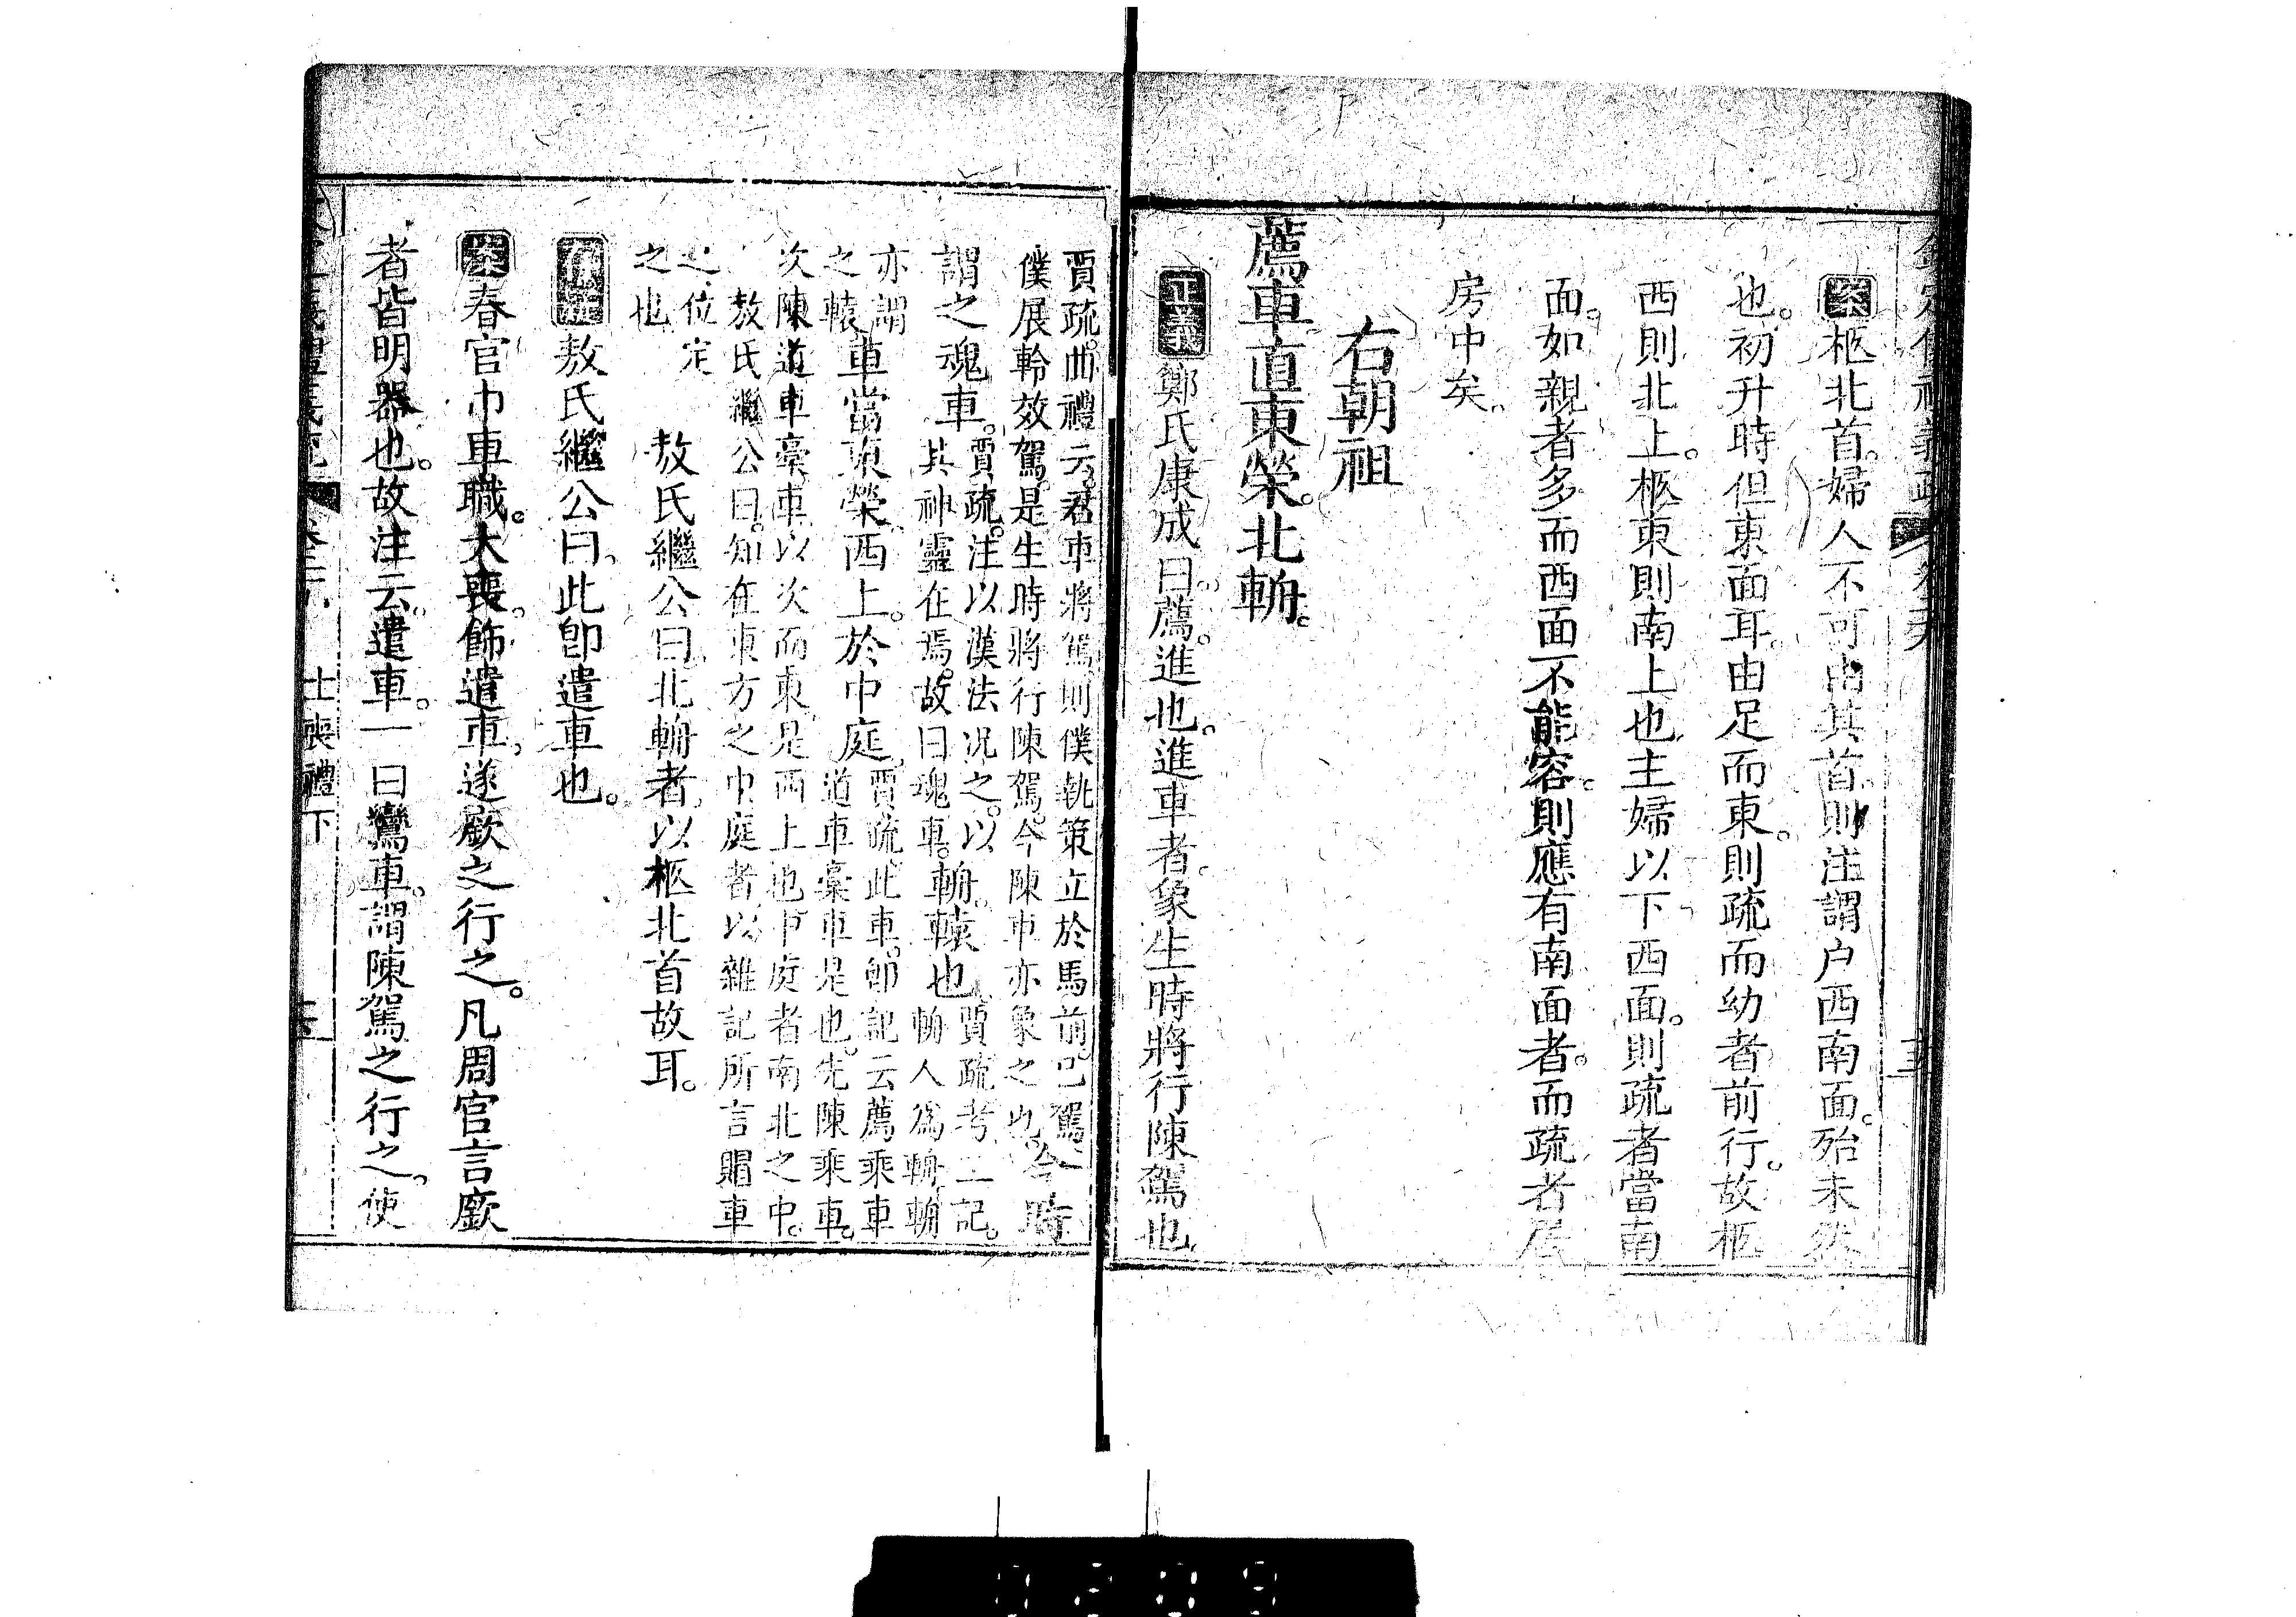 案柩北首婦人不可由其首則注謂户西南面殆未然
也初升時但東面耳由足而東則疏而幼者前行故柩
西則北上柩東則南上也主婦以下西面則疏者當南
面如親者多而西面不能容則應有南面者而疏者居
房中矣
右朝祖
薦車直東榮北輈
正義鄭氏康成曰薦進也進車者象生時將行陳駕也
賈疏曲禮云君車將駕則僕執策立於馬前已駕
僕展軨效駕是生時將行陳駕今陳車亦象之也
今時
謂之魂車
賈疏注以漢法况之以
其神靈在焉故曰魂車
輈轅也
賈疏考工記
輈人爲輈輈
亦謂
之轅
車當東榮西上於中庭
賈疏此車卽記云薦乘車
道車槀車是也先陳乘車
次陳道車槀車以次而東是西上也中庭者南北之中
敖氏繼公曰知在東方之中庭者以雜記所言賵車
之位定
之也
敖氏繼公曰北輈者以柩北首故耳
敖氏繼公曰此卽遣車也
案春官巾車職大喪飾遣車遂廞之行之凡周官言廞
者皆明器也故注云遣車一曰鸞車謂陳駕之行之使
士喪禮下